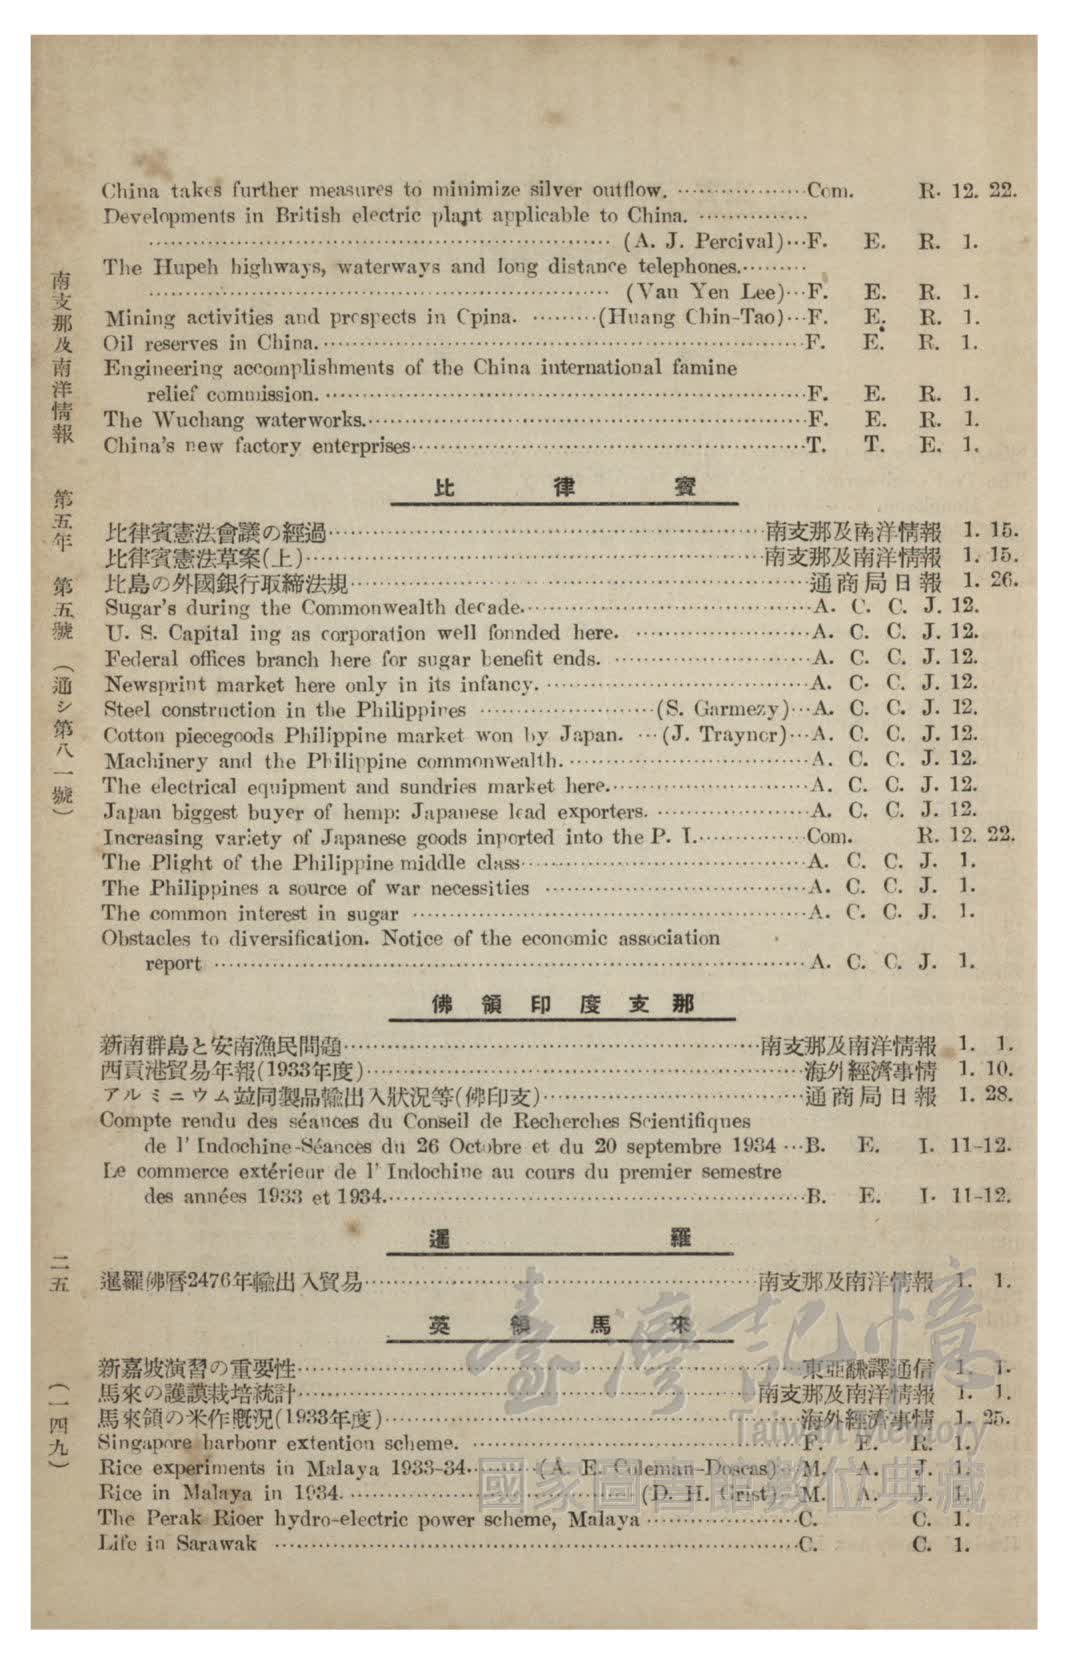 China takes further measures to minimize silver outflow. ··················Com. R. 12. 22.
Developments in British electric plant applicable to China. ···············
································································ (A. J. Percival)···F. E. R. 1.
The Hupeh highways, waterways and long distance telephones.·········
································································ (Van Yen Lee)···F. E. R. 1.
Mining activities and prospects in Cpina. ·········(Huang Chin-Tao)···F. E. R. 1.
Oil reserves in China.···································································F. E. R. 1.
Engineering accomplishments of the China international famine
relief commission. ·····························································F. E. R. 1.
The Wuchang waterworks.·····························································F. E. R. 1.
China's new factory enterprises·······················································T. T. E. 1.
比律賓
比律賓憲法會議の經過·····························································南支那及南洋情報 1. 15.
比律賓憲法草案(上)································································南支那及南洋情報 1. 15.
比島の外國銀行取締法規·····························································通商局日報 1. 26.
Sugar's during the Commonwealth decade.········································A. C. C. J. 12.
U. S. Capital ing as corporation well fonnded here. ························A. C. C. J. 12.
Federal offices branch here for sugar benefit ends. ···························A. C. C. J. 12.
Newsprint market here only in its infancy. ·····································A. C. C. J. 12.
Steel construction in the Philippines ························(S. Garmezy)···A. C. C. J. 12.
Cotton piecegoods Philippine market won by Japan. ···(J. Traynor)···A. C. C. J. 12.
Machinery and the Philippine commonwealth. ··································A. C. C. J. 12.
The electrical equipment and sundries market here.····························A. C. C. J. 12.
Japan biggest buyer of hemp: Japanese lead exporters. ······················A. C. C. J. 12.
Increasing variety of Japanese goods inported into the P. I.···············Com. R. 12. 22.
The Plight of the Philippine middle class·······································A. C. C. J. 1.
The Philippines a source of war necessities ····································A. C. C. J. 1.
The common interest in sugar ······················································A. C. C. J. 1.
Obstacles to diversification. Notice of the economic association
report ·················································································A. C. C. J. 1.
佛領印度支那
新南群島と安南漁民問題·····························································南支那及南洋情報 1. 1.
西貢港貿易年報(1933年度)·····························································海外經濟事情 1. 10.
アルミニウム竝同製品輸出入狀況等(佛印支)····································通商局日報 1. 28.
Compte rendu des séances du Conseil de Recherches Scientifiques
de l' Indochine-Séances du 26 Octobre et du 20 septembre 1934 ···B. E. I. 11-12.
Le commerce extérieur de l' Indochine au cours du premier semestre
des années 1933 et 1934.···························································B. E. I. 11-12.
暹羅
暹羅佛曆2476年輸出入貿易·······················································南支那及南洋情報 1. 1.
英領馬來
新嘉坡演習の重要性································································東亞飜譯通信 1. 1.
馬來の護謨栽培統計································································南支那及南洋情報 1. 1.
馬來領の米作概況(1933年度)·······················································海外經濟事情 1. 25.
Singapore harbour extention scheme. ············································F. E. R. 1.
Rice experiments in Malaya 1933-34.·········(A. E. Coleman-Doscas)···M. A. J. 1.
Rice in Malaya in 1934. ·········································(D. H. Grist)···M. A. J. 1.
The Perak Rioer hydro-electric power scheme, Malaya ·····················C. C. 1.
Life in Sarawak ·········································································C. C. 1.
南支那及南洋情報 第五年 第五號 (通シ第八一號)
二五
(一四九)
臺灣記憶
Taiwan Memory
國家圖書館數位典藏